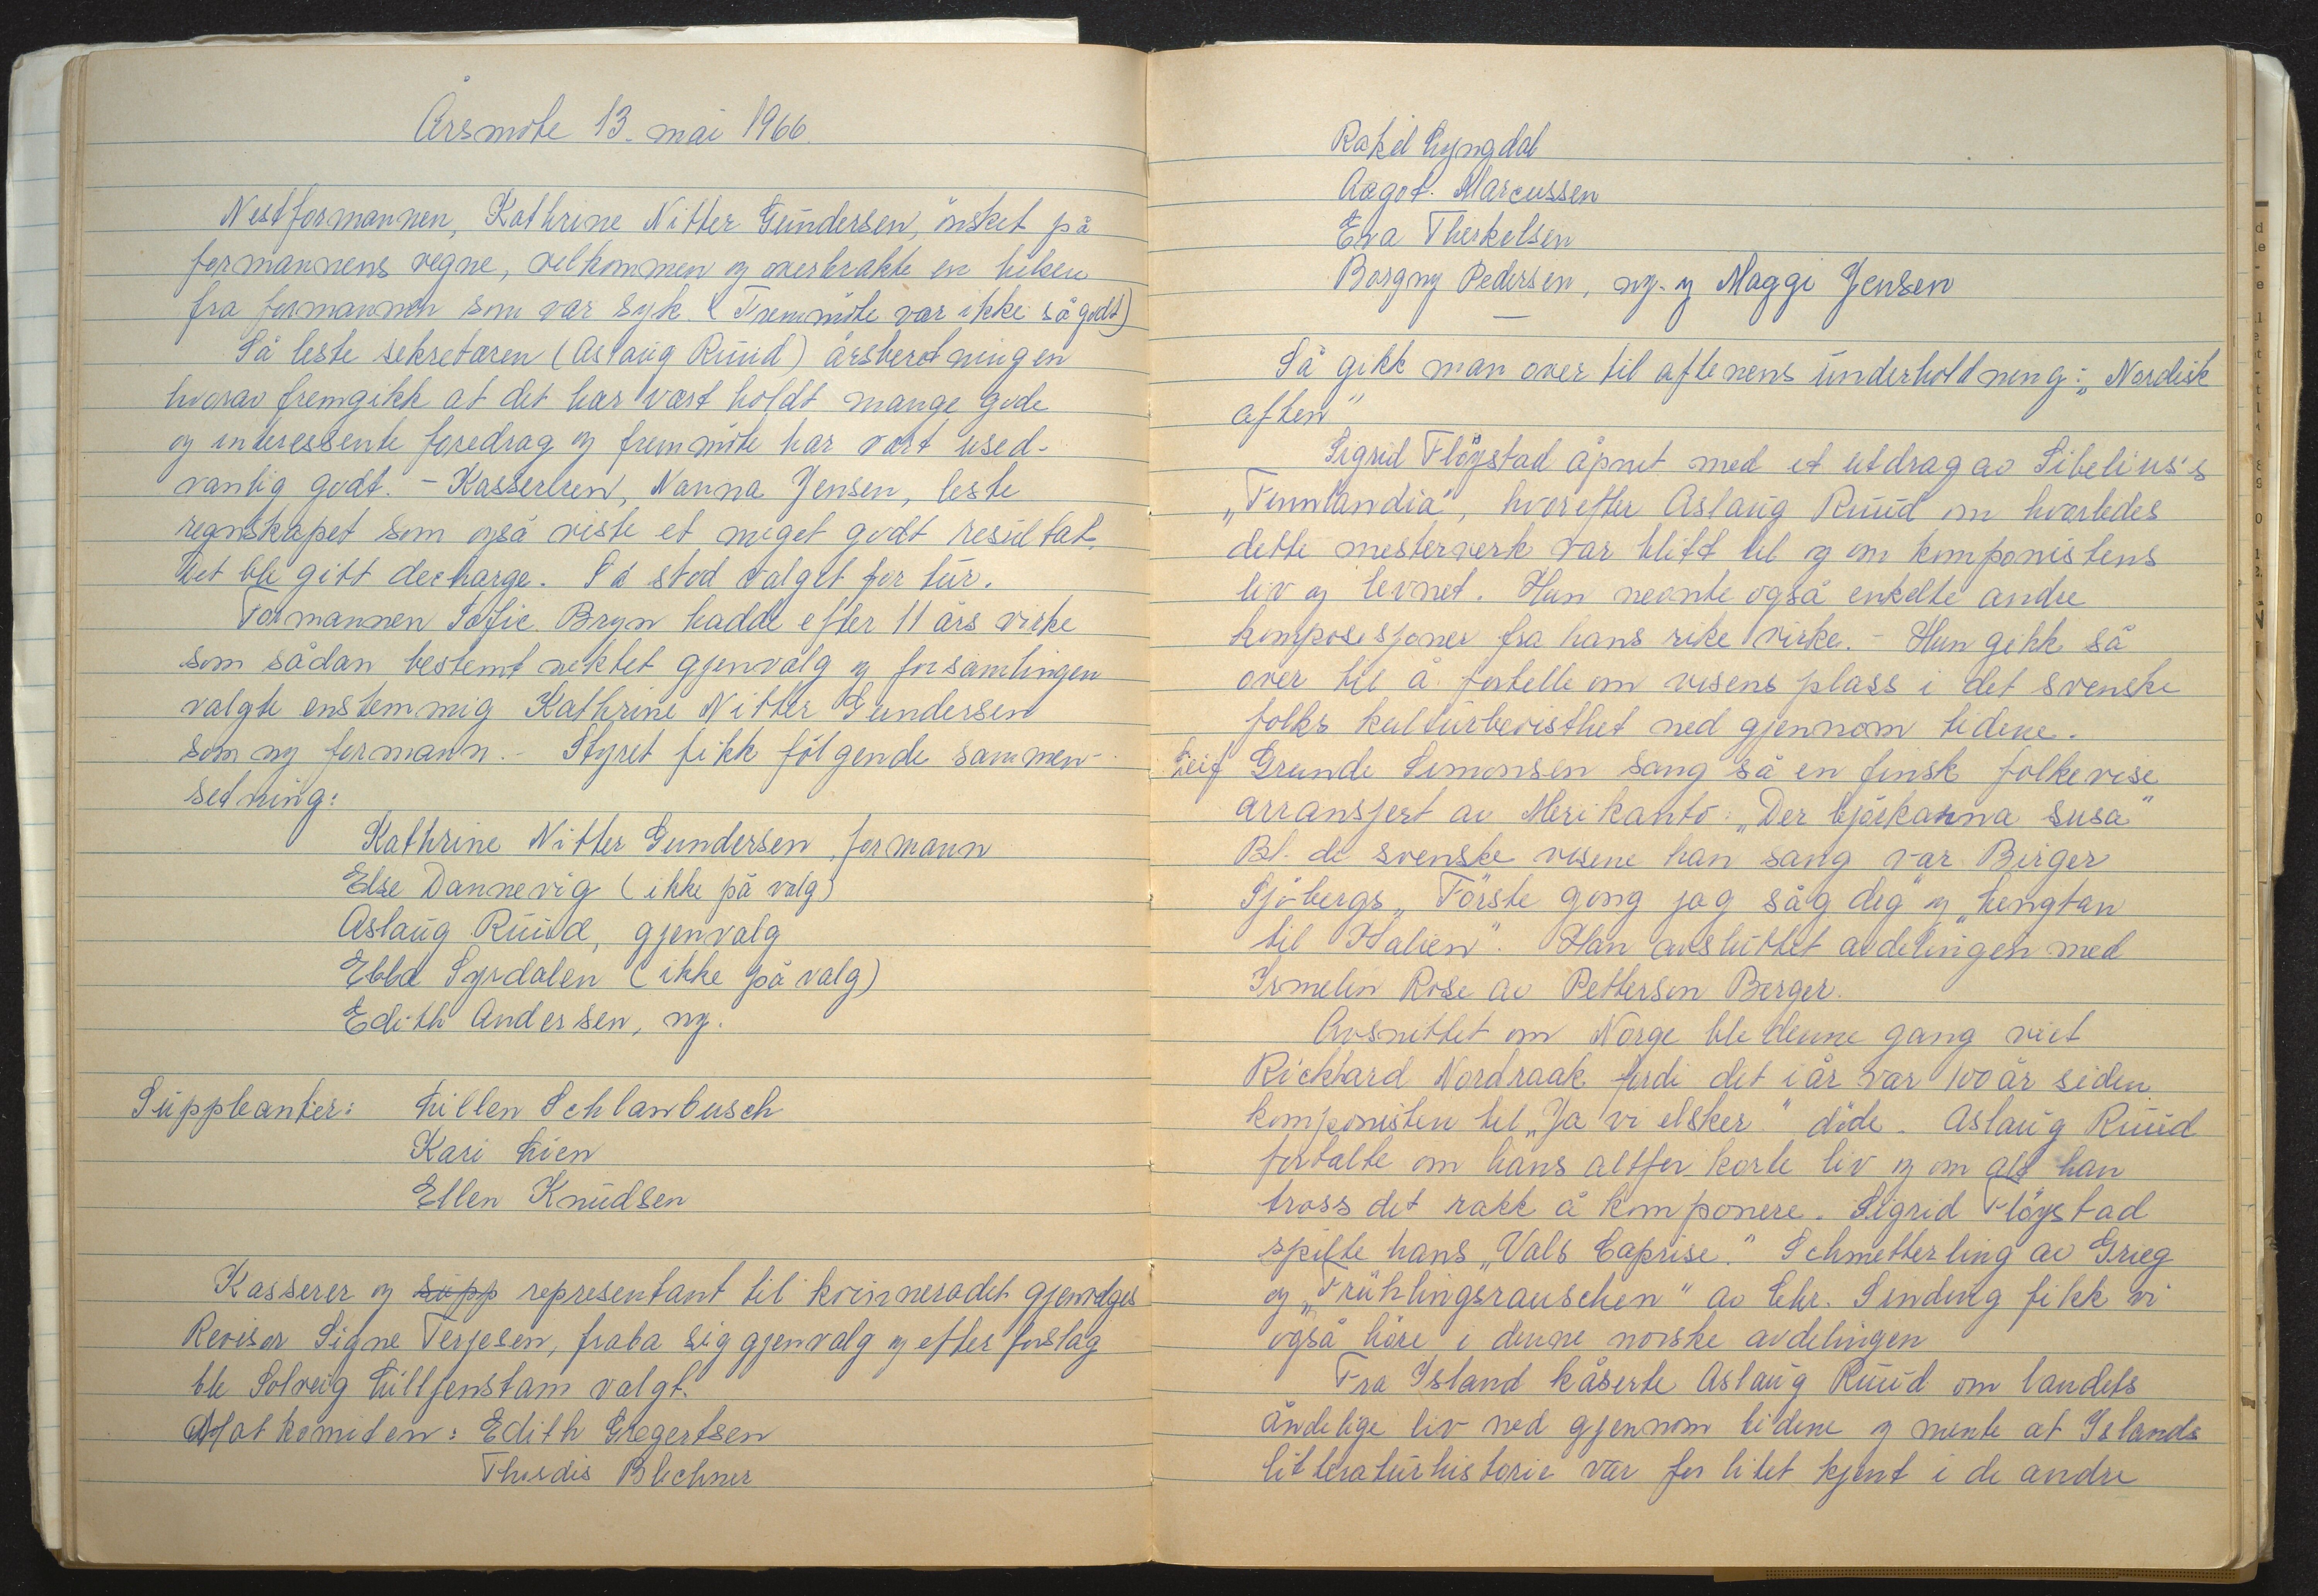 Årsmöte 13. mai 1966.
Nestformannen, Kathrine Nitter Gundersen, önsket på
formannens vegne, velkommen og overbrakte en hilsen
fra formannen som var syk. (Fremmöte var ikke så godt)
Så leste sekretæren (Aslaug Ruud) årsberetningen
hvorav fremgikk at det har vært holdt mange gode
og interessente foredrag og fremmöte har vært used-
vanlig godt. - Kassereren, Nanna Jensen, leste
regnskapet som også viste et meget godt resultat.
Det ble gitt decharge. Så stod valget for tur.
Formannen Sofie Bryn hadde efter 11 års virke
som sådan bestemt nektet gjenvalg og forsamlingen
valgte enstemmig Kathrine Nitter Gundersen
som ny formann. - Styret fikk fölgende sammen-
setning:
Kathrine Nitter Gundersen, formann
Else Dannevig (ikke på valg)
Aslaug Ruud, gjenvalg
Ebba Syrdalen (ikke på valg)
Edith Andersen, ny.
Suppleanter: Lillen Schlanbusch
Kari Lien
Ellen Knudsen
Kasserer og supp representant til kvinnerådet gjenvalges
Revisor Signe Terjesen, fraba sig gjenvalg og efter forslag
ble Solveig Lilljenstam valgt.
Matkomiteen: Edith Gregertsen
Thordis Blechner
Rakel Lyngdal
Aagot. Marcussen
Eva Therkelsen
Borgny Pedersen, ny. og Maggi Jensen
Så gikk man over til aftenens underholdning: „Nordisk
aften"
Sigrid Flöystad åpnet med et utdrag av Sibelius's
„Finnlandia", hvorefter Aslaug Ruud om hvorledes
dette mesterverk var blitt til og om komponistens
liv og levnet. Hun nevnte også enkelte andre
komposisjoner fra hans rike virke. - Hun gikk så
over til å fortelle om visens plass i det svenske
folks kulturbevisthet ned gjennom tidene.
Leif Grunde Simonsen sang så en finsk folkevise
arransjert av Merikanto: „Der björkarna susa"
Bl. de svenske visene han sang var Birger
Sjöbergs „Förste gong jag såg dig" og „Lengtan
til Italien". Han avsluttet avdelingen med
Irmelin Rose av Petterson Berger.
Avsnittet om Norge ble denne gang viet
Rickhard Nordraak fordi det i år var 100 år siden
komponisten til „Ja vi elsker" döde. Aslaug Ruud
fortalte om hans altfor korte liv og om alt han
tross det rakk å komponere. Sigrid Flöystad
spilte hans „Vals Caprise." Schmetterling av Grieg
og „Frühlingsrauschen" av Chr. Sinding fikk vi
også höre i denne norske avdelingen
Fra Island kåserte Aslaug Ruud om landets
åndelige liv ned gjennom tidene og mente at Islands
litteraturhistorie var for litet kjent i de andre